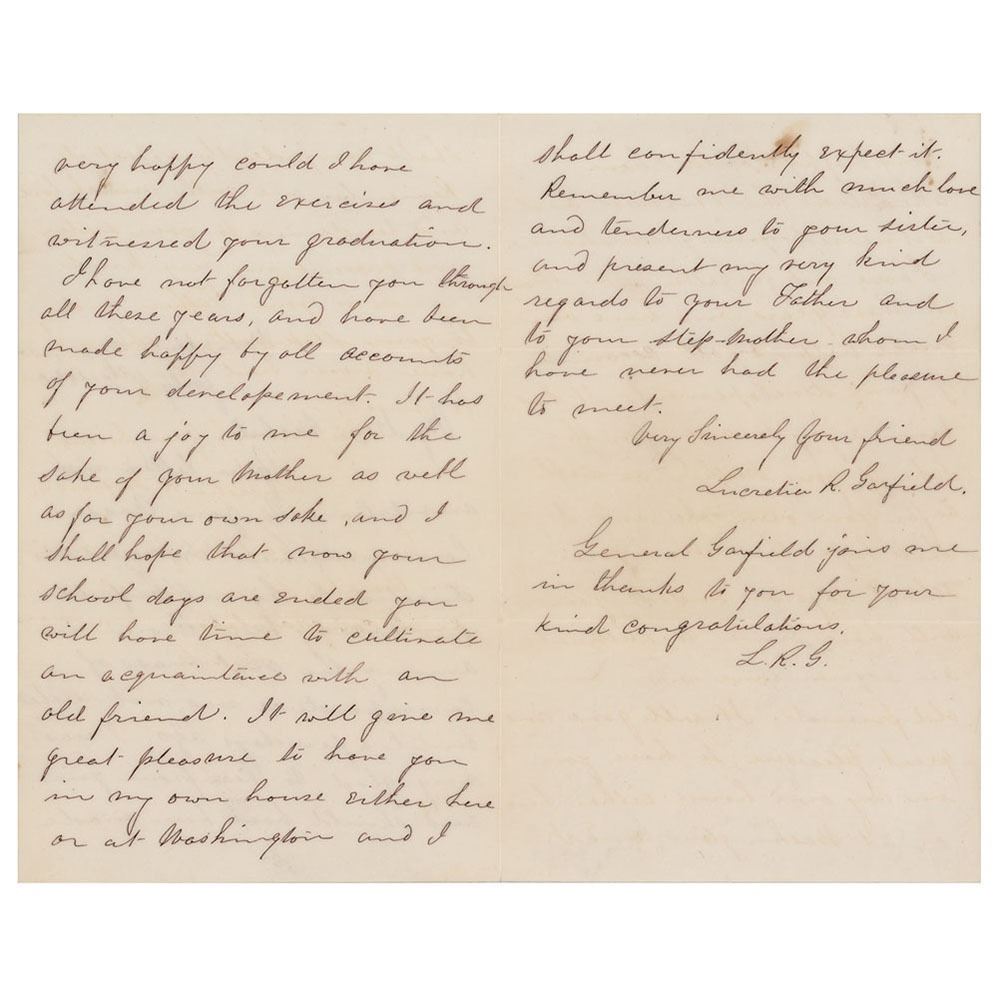 very happy could I have
attended the exercises and
witnessed your graduation.
I have not forgotten you through
all these years, and have been
made happy by all accounts
of your developement. It has
been a joy to me for the
sake of your Mother as well
as for your own sake, and I
shall hope that now your
school days are ended you
will have time to cultivate
an acquaintance with an
old friend. It will give me
great pleasure to have you
in my own house either here
or at Washington and I
shall confidently expect it.
Remember me with much love
and tenderness to your sister,
and present my very kind
regards to your Father and
to your step-Mother whom I
have never had the pleasure
to meet.
Very Sincerely Your friend
Lucretia R. Garfield.
General Garfield joins me
in thanks to you for your
kind congratulations.
L. R. G.